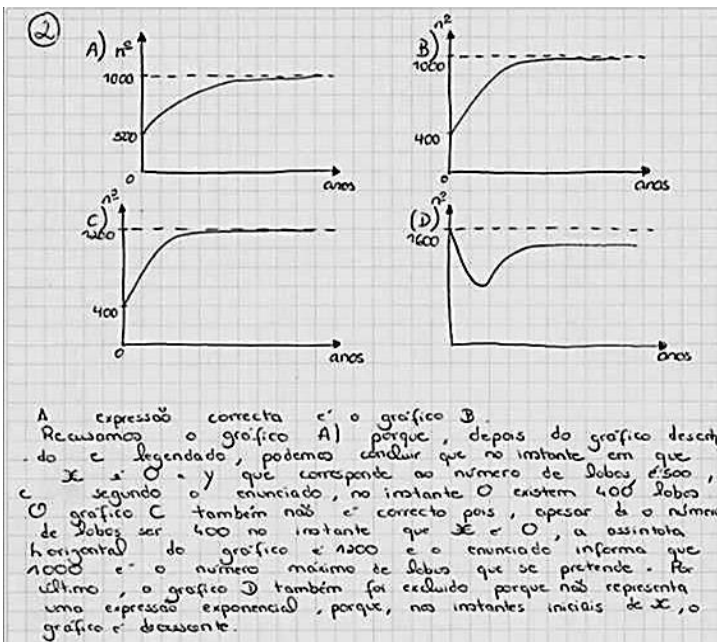 2
A) nº
1000
500
0
anos
B) nº
1000
400
0
anos
C) nº
1200
400
0
anos
(D) nº
1600
anos
A expressão correcta é o gráfico B.
Recusamos o gráfico A) porque, depois do gráfico desenh
do e legendado, podemos concluir que no instante em que
x é 0 o y que corresponde ao número de lobos, é 500,
e segundo o enunciado, no instante 0 existem 400 lobos.
O gráfico C também não é correcto pois, apesar de o número
de lobos ser 400 no instante que x é 0, a assintota
horizontal do gráfico é 1200 e o enunciado informa que
1000 é o número máximo de lobos que se pretende. Por
último, o gráfico D também foi excluido porque não representa
uma expressão exponencial, porque, nos instantes iniciais de x, o
gráfico é decrescente.